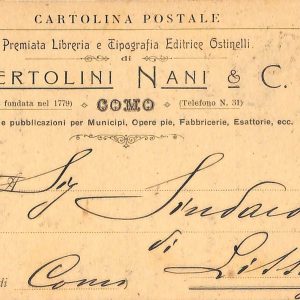 CARTOLINA POSTALE
Premiata Libreria e Tipografia Editrice Ostinelli
di
ERTOLINI NANI & C.
fondata nel 1779) COMO (Telefono N. 31)
e pubblicazioni per Municipi, Opere pie, Fabbricerie, Esattorie, ecc.
Sig Sindaco
di Liss
di Como